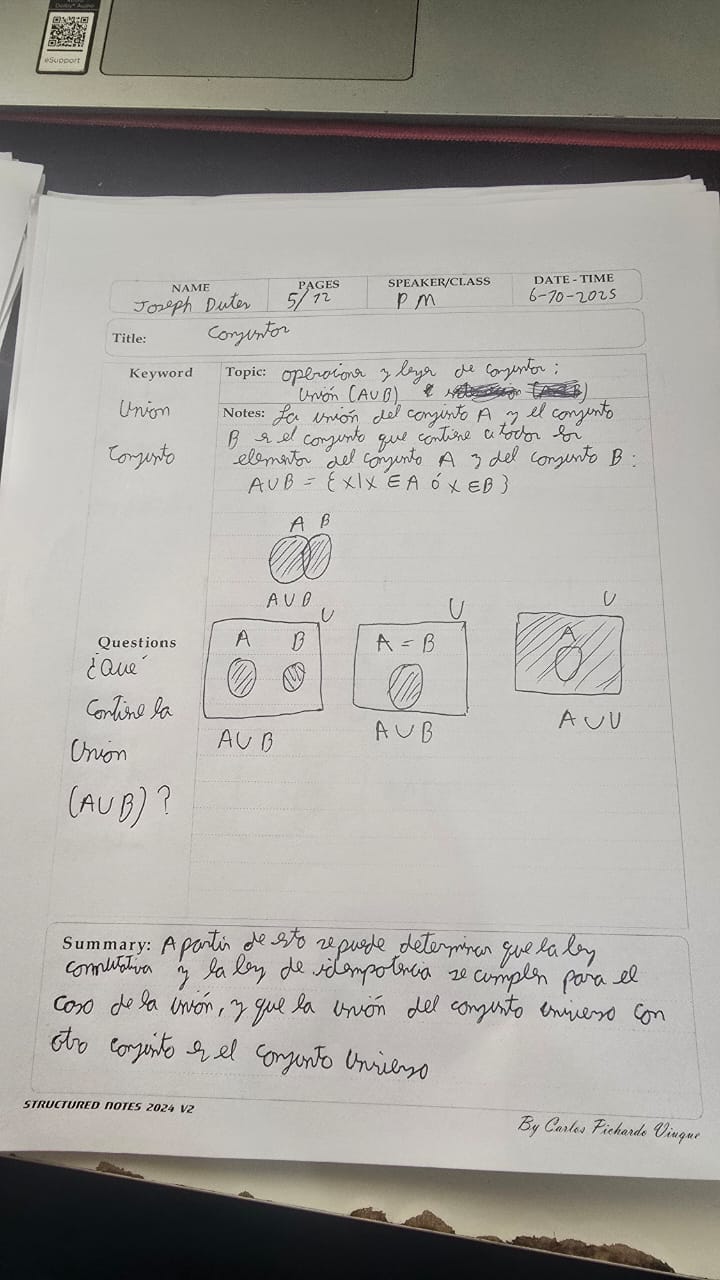 Dolby Audio
eSupport
NAME
PAGES
SPEAKER/CLASS
DATE - TIME
Joseph
5/12
PM
6-10-2025
Title: Conjuntos
Keyword
Topic: operaciones y leyes de conjuntos:
Unión (AUB)
Unión
Notes: La unión del conjunto A y el conjunto
Conjunto
B es el conjunto que contiene a todos los
elementos del conjunto A y del conjunto B:
AUB = {x|x ∈ A ó x ∈ B}
A B
AUB
U
U
U
Questions
A B
A = B
A
¿Qué
Contiene la
Unión
(AUB)?
AUB
AUB
AUU
Summary: A partir de esto se puede determinar que la ley
conmutativa y la ley de idempotencia se cumplen para el
caso de la unión, y que la unión del conjunto universo con
otro conjunto es el conjunto Universo
STRUCTURED NOTES 2024 V2
By Carlos Pichardo Viuque